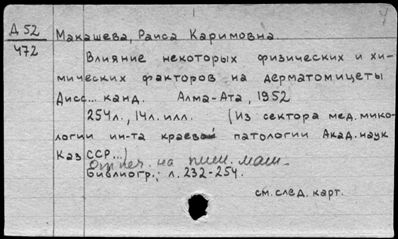 Д 52
472
Макашева, Раиса Каримовна.
Влияние некоторых физических и хи-
мических факторов на дерматомицеты
Дисс... канд. Алма-Ата, 1952
254л., 14л. илл. (Из сектора мед. мико-
логии ин-та краевой патологии Акад. наук
Каз ССР...)
Отпеч. на пиш. маш.
Библиогр.: л. 232-254.
см. след. карт.